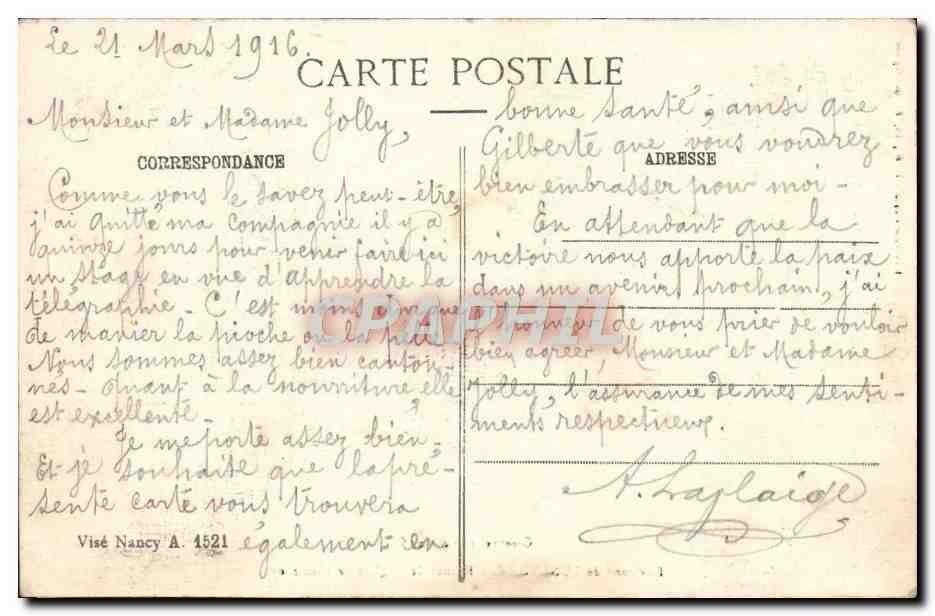 Le 21 Mars 1916.
CARTE POSTALE
Monsieur et Madame Jolly,
CORRESPONDANCE
Comme vous le savez peut-être,
j'ai quitté ma compagnie il y a
quinze jours pour venir faire ici
un stage en vue d'apprendre la
télégraphie. C'est moins
de manier la pioche ou la pelle
Nous sommes assez bien canton-
nés - Quant à la nourriture elle
est excellente.
Je me porte assez bien -
Et je souhaite que la pré-
sente carte vous trouvera
également en
Visé Nancy A. 1521
bonne santé, ainsi que
Gilberte que vous voudrez
ADRESSE
bien embrasser pour moi -
En attendant que la
victoire nous apporte la paix
dans un avenir prochain, j'ai
l'honneur de vous prier de vouloir
bien agréer, Monsieur et Madame
Jolly, l'assurance de mes senti-
ments respectueux.
CPAPHIL